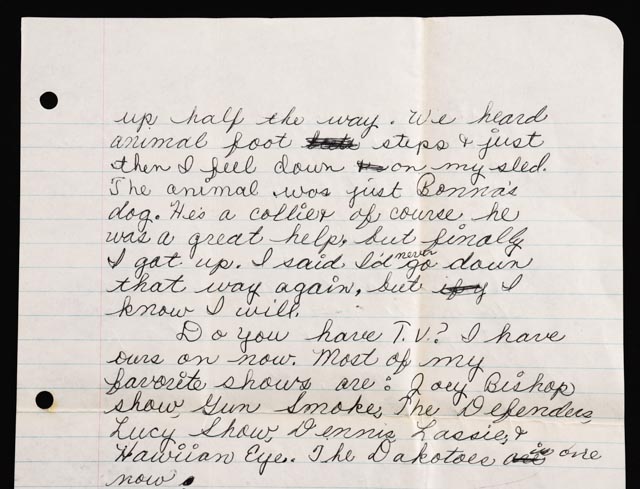 up half the way. We heard
animal foot steps & just
then I feel down on my sled.
The animal was just Bonna's
dog. He's a collier of course he
was a great help, but finally
I got up. I said I'd never go down
that way again, but I
know I will.
Do you have T.V.? I have
ours on now. Most of my
favorite shows are: Joey Bishop
show, Gun Smoke, The Defenders,
Lucy Show, Dennis, Lassie, &
Hawiian Eye. The Dakotoes is one
now.